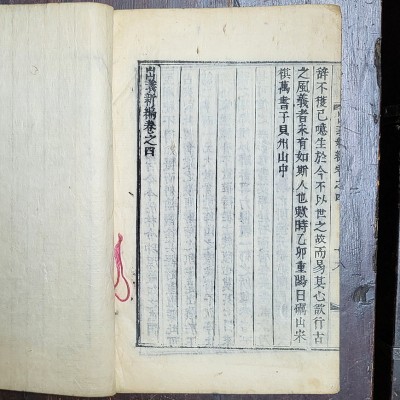 辭不獲已噫生於今不以世之故而易其心欲行古
之風義者未有如斯人也歟時乙卯重陽日礪山宋
棋萬書于貝州山中
出義新編卷之四